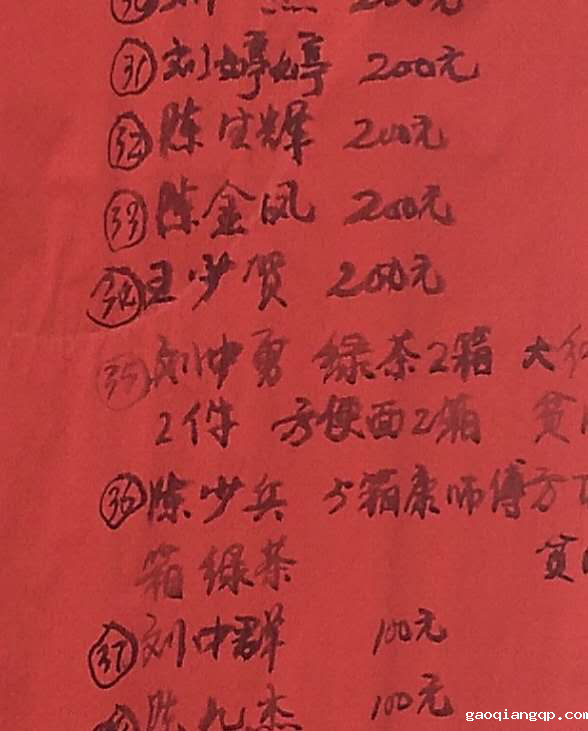 ㉚刘 杰 200元
㉛刘婷婷 200元
㉜陈宝辉 200元
㉝陈金凤 200元
㉞王少贺 200元
㉟刘中勇 绿茶2箱 大红
2件 方便面2箱
㊱陈少兵 5箱康师傅方
箱绿茶
㊲刘中群 100元
陈九杰 100元
gaoqiangqp.com